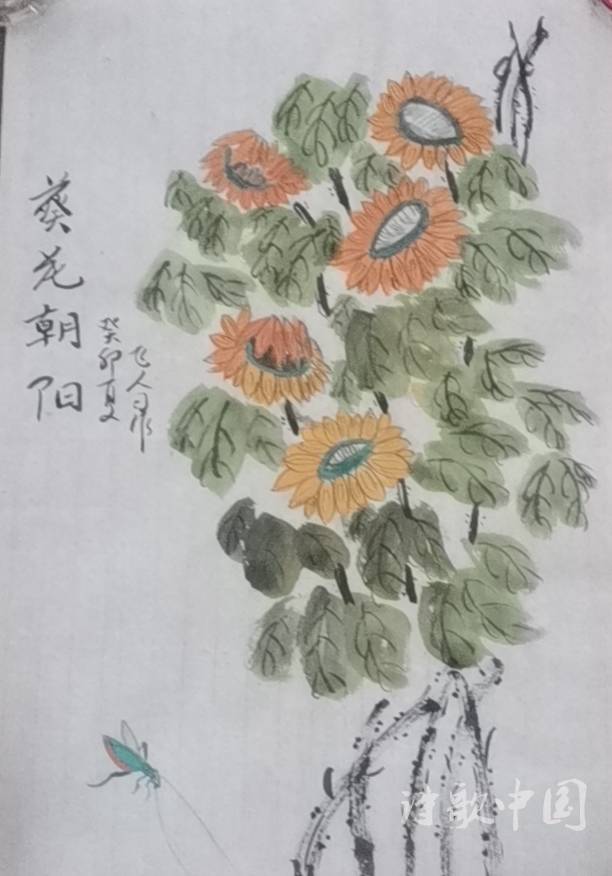 葵花朝阳
癸卯夏
飞人
诗歌中国